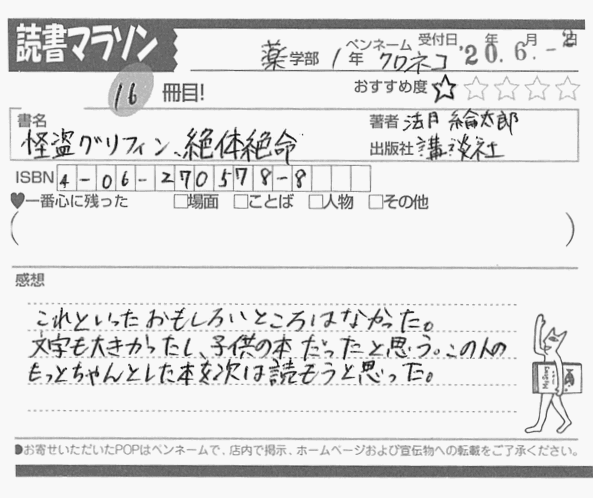 読書マラソン
薬学部 1年 ペンネーム クロネコ 受付日 '20年 6月 -2日
16 冊目! おすすめ度 ☆☆☆☆☆
書名 怪盗グリフィン、絶体絶命
著者 法月 綸太郎
出版社 講談社
ISBN 4-06-270578-8
♥一番心に残った □場面 □ことば □人物 □その他
( )
感想
これといったおもしろいところはなかった。
文字も大きかったし、子供の本だったと思う。この人の
もっとちゃんとした本を次は読もうと思った。
●お寄せいただいたPOPはペンネームで、店内で掲示、ホームページおよび宣伝物への転載をご了承ください。